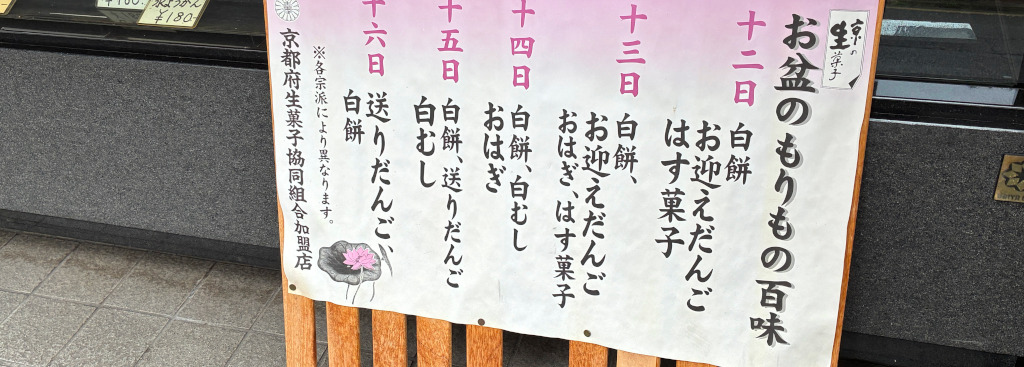 京の
生菓子
お盆のもりもの百味
十二日
白餅
お迎えだんご
はす菓子
十三日
白餅、
お迎えだんご
おはぎ、はす菓子
十四日
白餅、白むし
おはぎ
十五日
白餅、送りだんご
白むし
十六日
送りだんご、
白餅
※各宗派により異なります。
京都府生菓子協同組合加盟店
¥180-